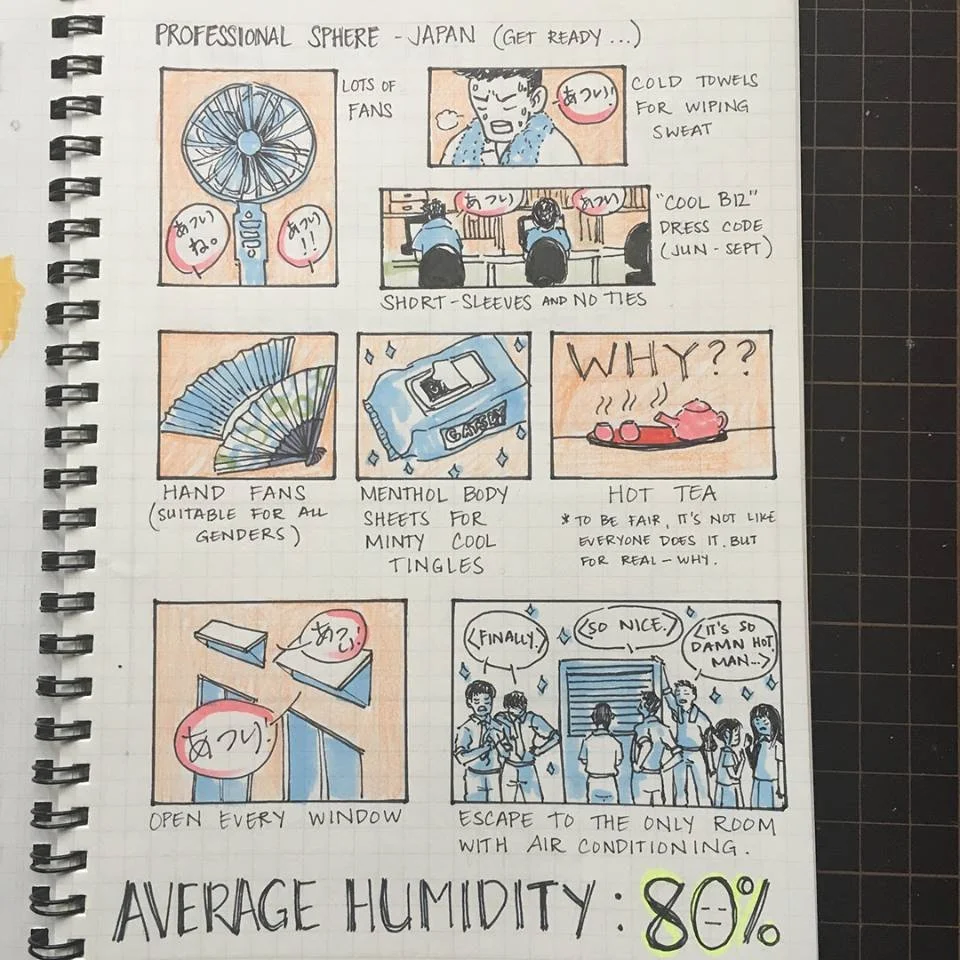 PROFESSIONAL SPHERE - JAPAN (GET READY...)
あつい
ね。
あつい
!!
LOTS OF
FANS
あつい!
COLD TOWELS
FOR WIPING
SWEAT
あつい
あつい
"COOL BIZ"
DRESS CODE
(JUN - SEPT)
SHORT-SLEEVES AND NO TIES
HAND FANS
(SUITABLE FOR ALL
GENDERS)
GATSBY
MENTHOL BODY
SHEETS FOR
MINTY COOL
TINGLES
WHY??
HOT TEA
* TO BE FAIR, IT'S NOT LIKE
EVERYONE DOES IT. BUT
FOR REAL - WHY.
あつい
あつい
OPEN EVERY WINDOW
<FINALLY.>
<SO NICE.>
<IT'S SO
DAMN HOT,
MAN...>
ESCAPE TO THE ONLY ROOM
WITH AIR CONDITIONING.
AVERAGE HUMIDITY: 80%